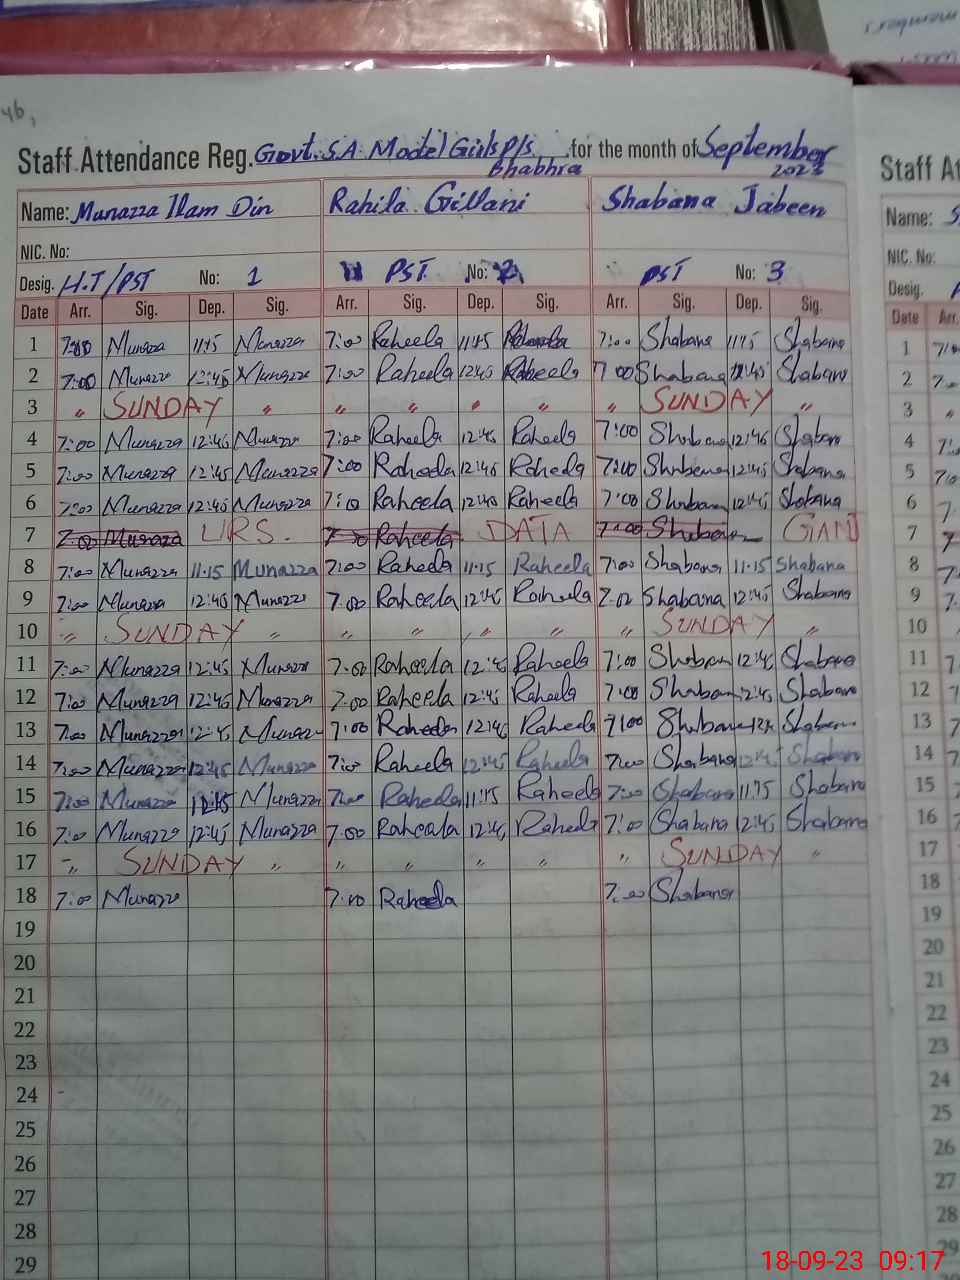 46,
Staff Attendance Reg. Govt. S.A. Model Girls P/s for the month of September
Bhabhra 2023
Name: Munazza Ilam Din Rahila Gillani Shabana Jabeen
NIC. No:
Desig. H.T/PST No: 1 PST No: 2 PST No: 3
Date Arr. Sig. Dep. Sig. Arr. Sig. Dep. Sig. Arr. Sig. Dep. Sig.
1 7:00 Munazza 11:15 Munazza 7:00 Raheela 11:15 Raheela 7:00 Shabana 11:15 Shabana
2 7:00 Munazza 12:45 Munazza 7:00 Raheela 12:45 Raheela 7:00 Shabana 12:45 Shabana
3 " SUNDAY " " " " " " SUNDAY "
4 7:00 Munazza 12:45 Munazza 7:00 Raheela 12:45 Raheela 7:00 Shabana 12:45 Shabana
5 7:00 Munazza 12:45 Munazza 7:00 Raheela 12:45 Raheela 7:00 Shabana 12:45 Shabana
6 7:00 Munazza 12:45 Munazza 7:00 Raheela 12:45 Raheela 7:00 Shabana 12:45 Shabana
7 7:00 Munazza URS. 7:00 Raheela DATA 7:00 Shabana GANJ
8 7:00 Munazza 11:15 Munazza 7:00 Raheela 11:15 Raheela 7:00 Shabana 11:15 Shabana
9 7:00 Munazza 12:45 Munazza 7:00 Raheela 12:45 Raheela 7:00 Shabana 12:45 Shabana
10 " SUNDAY " " " " " " SUNDAY "
11 7:00 Munazza 12:45 Munazza 7:00 Raheela 12:45 Raheela 7:00 Shabana 12:45 Shabana
12 7:00 Munazza 12:45 Munazza 7:00 Raheela 12:45 Raheela 7:00 Shabana 12:45 Shabana
13 7:00 Munazza 12:45 Munazza 7:00 Raheela 12:45 Raheela 7:00 Shabana Shabana
14 7:00 Munazza 12:45 Munazza 7:00 Raheela 12:45 Raheela 7:00 Shabana 12:45 Shabana
15 7:00 Munazza 11:15 Munazza 7:00 Raheela 11:15 Raheela 7:00 Shabana 11:15 Shabana
16 7:00 Munazza 12:45 Munazza 7:00 Raheela 12:45 Raheela 7:00 Shabana 12:45 Shabana
17 " SUNDAY " " " " " " SUNDAY "
18 7:00 Munazza 7:00 Raheela 7:00 Shabana
19
20
21
22
23
24
25
26
27
28
29
Staff
Name:
NIC. No:
Desig.
Date Arr.
1
2
3
4
5
6
7
8
9
10
11
12
13
14
15
16
17
18
19
20
21
22
23
24
25
26
27
28
29
18-09-23 09:17